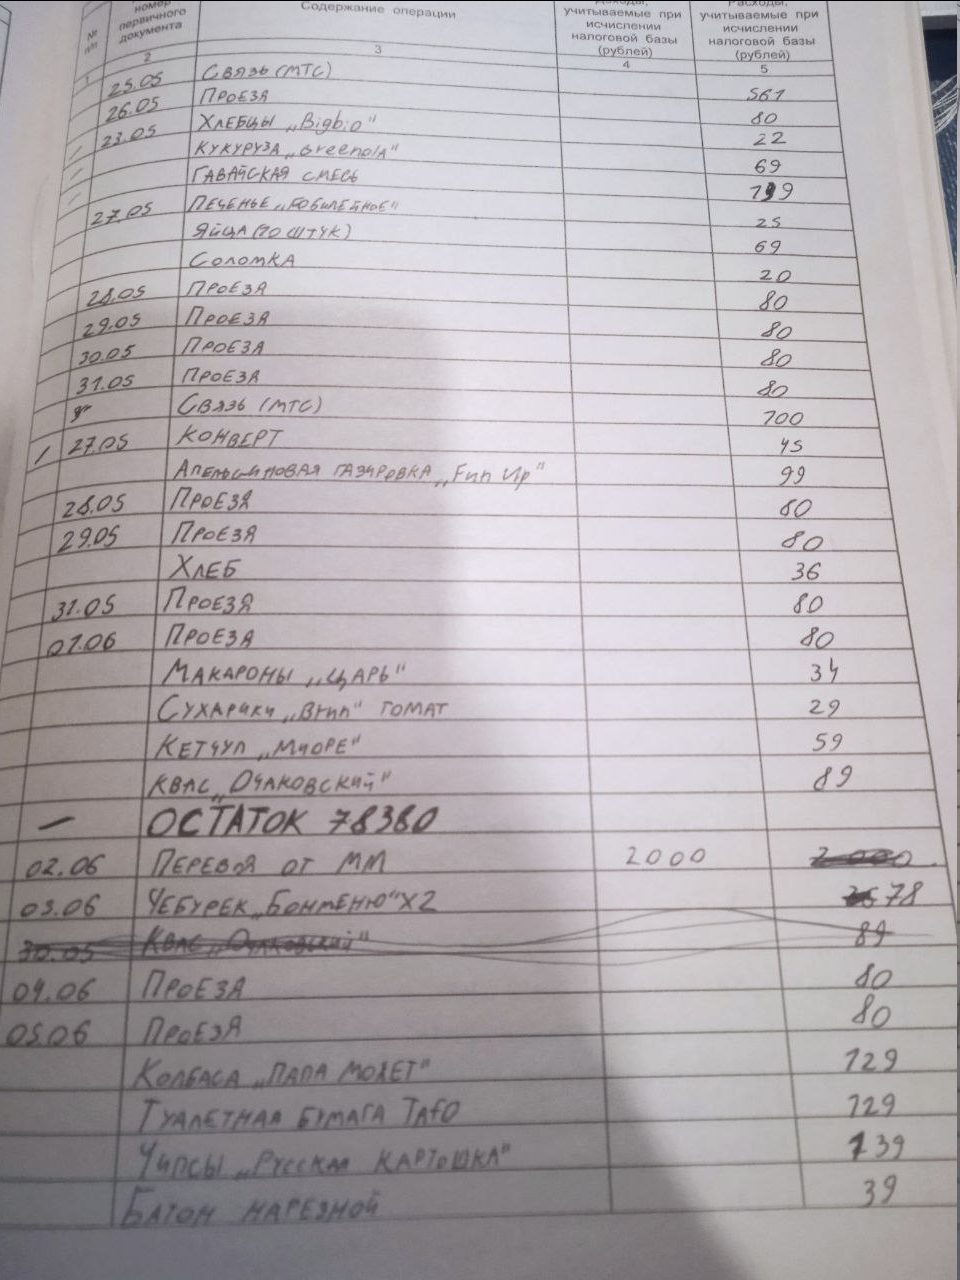 № п/п номер первичного документа Содержание операции Доходы, учитываемые при исчислении налоговой базы (рублей) Расходы, учитываемые при исчислении налоговой базы (рублей)
1 2 3 4 5
25.05 Связь (МТС) 561
26.05 Проезд 80
23.05 Хлебцы „Bigbio" 22
Кукуруза „Greenola" 69
Гавайская смесь 199
27.05 Печенье „Юбилейное" 25
Яйца (10 штук) 69
Соломка 20
28.05 Проезд 80
29.05 Проезд 80
30.05 Проезд 80
31.05 Проезд 80
Связь (МТС) 700
27.05 Конверт 45
Апельсиновая газировка „Fun Up" 99
28.05 Проезд 80
29.05 Проезд 80
Хлеб 36
31.05 Проезд 80
01.06 Проезд 80
Макароны „Царь" 34
Сухарики „Brun" томат 29
Кетчуп „Миоре" 59
Квас „Очаковский" 89
— ОСТАТОК 78380
02.06 Перевод от ММ 2000 2000
03.06 Чебурек „Бонменю" X2 78
30.05 Квас „Очаковский" 89
04.06 Проезд 80
05.06 Проезд 80
Колбаса „Папа может" 129
Туалетная бумага Tafo 129
Чипсы „Русская картошка" 139
Батон нарезной 39